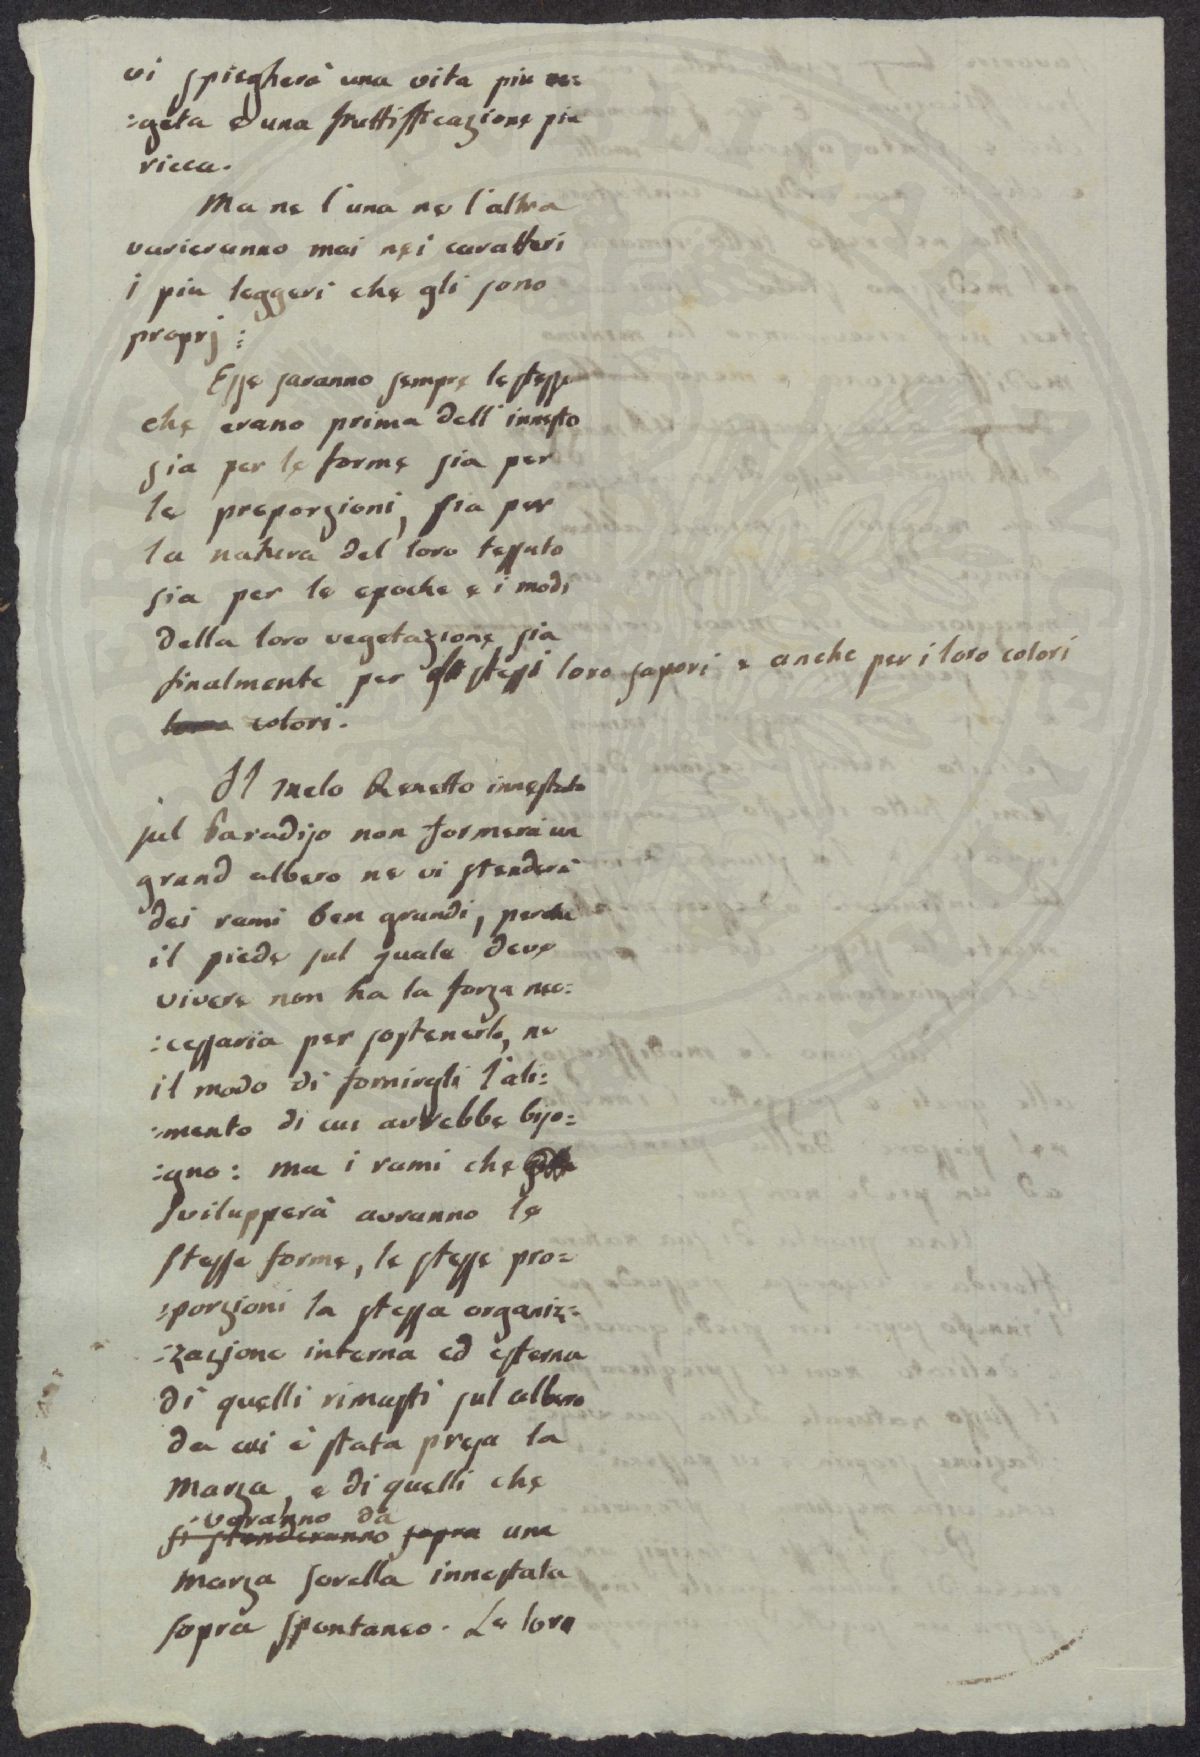 vi spiegherà una vita piu ve=
:geta e una fruttificazione piu
ricca.
Ma ne l'una ne l'altra
varieranno mai nei caratteri
i piu leggeri che gli sono
proprj:
Esse saranno sempre le stesse
che erano prima dell'innesto
sia per le forme sia per
le proporzioni, sia per
la natura del loro tessuto
sia per le epoche e i modi
della loro vegetazione sia
finalmente per gli stessi loro sapori e anche per i loro colori
loro colori.
Il melo Renetto innestato
sul Paradiso non formerà un
grand albero ne vi stenderà
dei rami ben grandi, perche
il piede sul quale deve
vivere non ha la forza nec=
:cessaria per sostenerlo, ne
il modo di fornirgli l'ali=
:mento di cui avrebbe biso=
:gno: ma i rami che
svilupperà avranno le
stesse forme, le stesse pro=
:porzioni la stessa organiz=
:zazione interna ed esterna
di quelli rimasti sul albero
da cui è stata presa la
marza, e di quelli che
verranno da
si stenderanno sopra una
marza sorella innestata
sopra spontaneo. Le loro